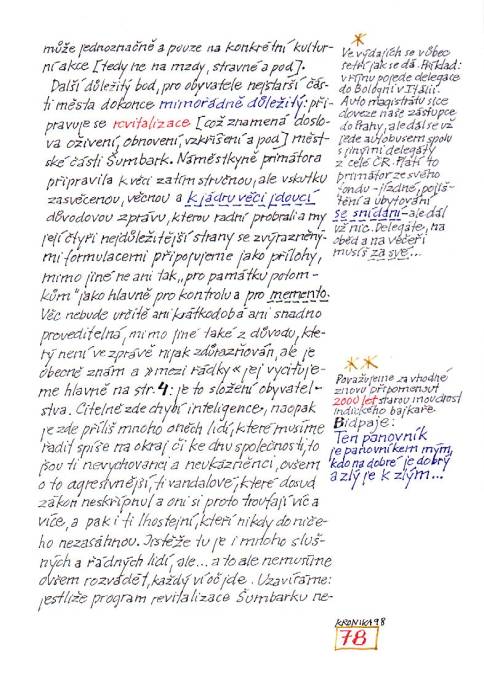 může jednoznačně a pouze na konkrétní kultur-
ní akce [tedy ne na mzdy, stravné a pod].
Další důležitý bod, pro obyvatele nejstarší čás-
ti města dokonce mimořádně důležitý: při-
pravuje se revitalizace [což znamená doslo-
va oživení, obnovení, vzkříšení a pod] měst-
ské části Šumbark. Náměstkyně primátora
připravila k věci zatím stručnou, ale vskutku
zasvěcenou, věcnou a k jádru věci jdoucí
důvodovou zprávu, kterou radní probrali a my
její čtyři nejdůležitější strany se zvýrazněný-
mi formulacemi připojujeme jako přílohy,
mimo jiné ne ani tak „pro památku potom-
kům" jako hlavně pro kontrolu a pro memento.
Věc nebude určitě ani krátkodobá ani snadno
proveditelná, mimo jiné také z důvodu, kte-
rý není ve zprávě nijak zdůrazňován, ale je
obecně znám a »mezi řádky« jej vycituje-
me hlavně na str. 4: je to složení obyvatel-
stva. Citelně zde chybí inteligence, naopak
je zde příliš mnoho oněch lidí, které musíme
řadit spíše na okraj či ke dnu společnosti, to
jsou ti nevychovanci a neukázněnci, ovšem
o to agresivnější, ti vandalové, které dosud
zákon neskřípnul a oni si proto troufají víc a
více, a pak i ti lhostejní, kteří nikdy do niče-
ho nezasáhnou. Jistěže tu je i mnoho sluš-
ných a řádných lidí, ale... a to ale nemusíme
ovšem rozvádět, každý ví oč jde. Uzavíráme:
jestliže program revitalizace Šumbarku ne-
*
Ve výdajích se vůbec
šetří jak se dá. Příklad:
v říjnu pojede delegace
do Bologni v Itálii.
Auto magistrátu sice
doveze naše zástupce
do Prahy, ale dál se už
jede autobusem spolu
s jinými delegáty
z celé ČR. Platí to
primátor ze svého
fondu - jízdné, pojiš-
tění a ubytování
se snídaní - ale dál
už nic. Delegáte, na
oběd a na večeři
musíš za své...
**
Považujeme za vhodné
znovu připomenout
2000 let starou moudrost
indického bajkaře
Bidpaje:
Ten panovník
je panovníkem mým,
kdo na dobré je dobrý
a zlý je k zlým...
KRONIKA 98
78